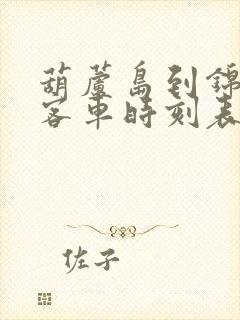 葫蘆島到錦
客車時刻表
佐子